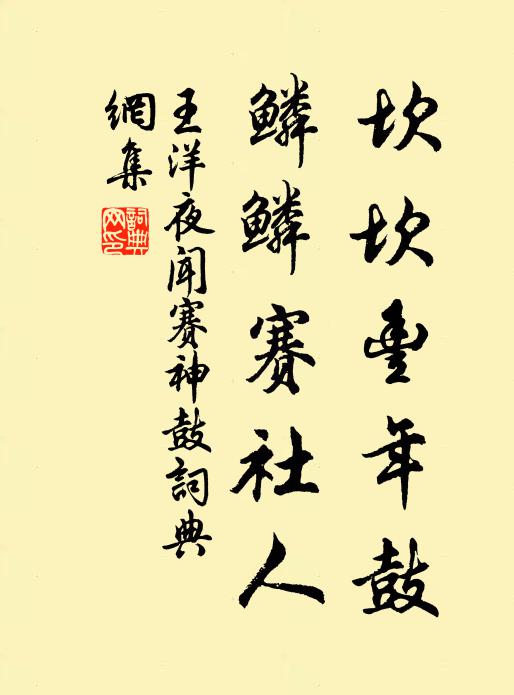 坎坎豐年鼓
鱗鱗賽社人
王洋夜聞賽神鼓詞典
網集
詞典
网印